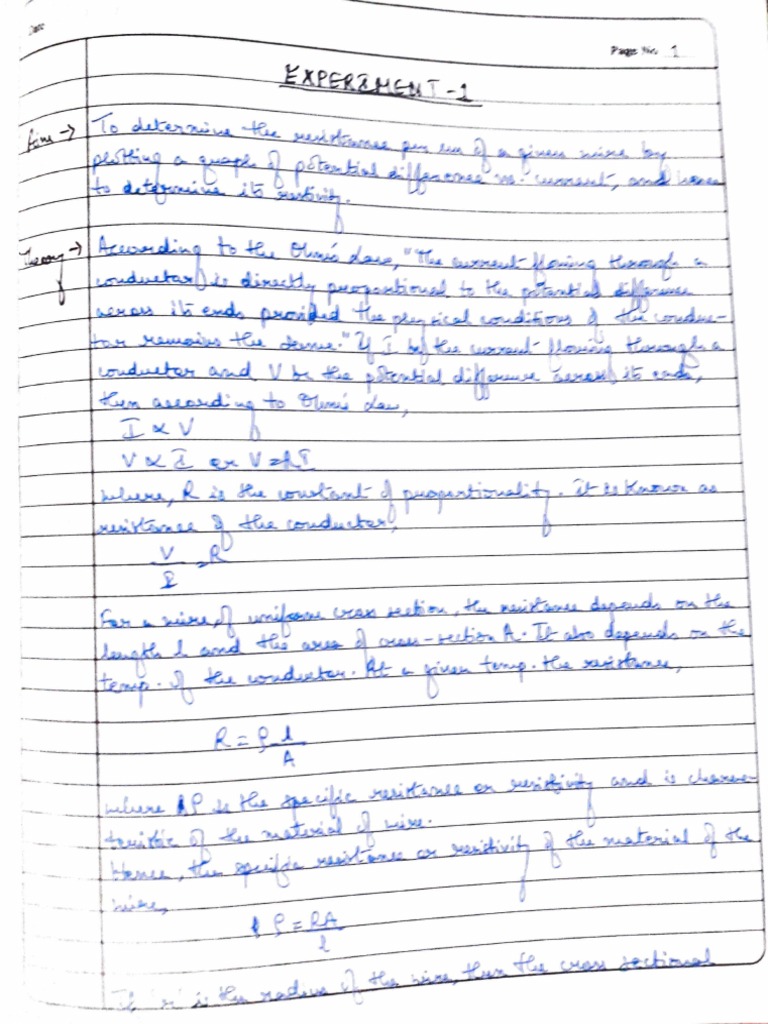 Date
Page No. 1
EXPERIMENT-1
Aim → To determine the resistance per cm of a given wire by
plotting a graph of potential difference vs. current, and hence
to determine its restivity.
Theory → According to the Ohm's Law, "The current flowing through a
conductor is directly proportional to the potential difference
across its ends provided the physical conditions of the conduc-
tor remains the same." If I be the current flowing through a
conductor and V be the potential difference across its ends,
then according to Ohm's Law,
I ∝ V
V ∝ I or V = RI
where, R is the constant of proportionality. It is known as
resistance of the conductor,
V/I = R
For a wire, of uniform cross section, the resistance depends on the
length l and the area of cross-section A. It also depends on the
temp. of the conductor. At a given temp. the resistance,
R = ρ l/A
where ρ is the specific resistance or resistivity and is charac-
teristic of the material of wire.
Hence, the specific resistance or resistivity of the material of the
wire,
ρ = RA/l
If 'r' is the radius of the wire, then the cross sectional